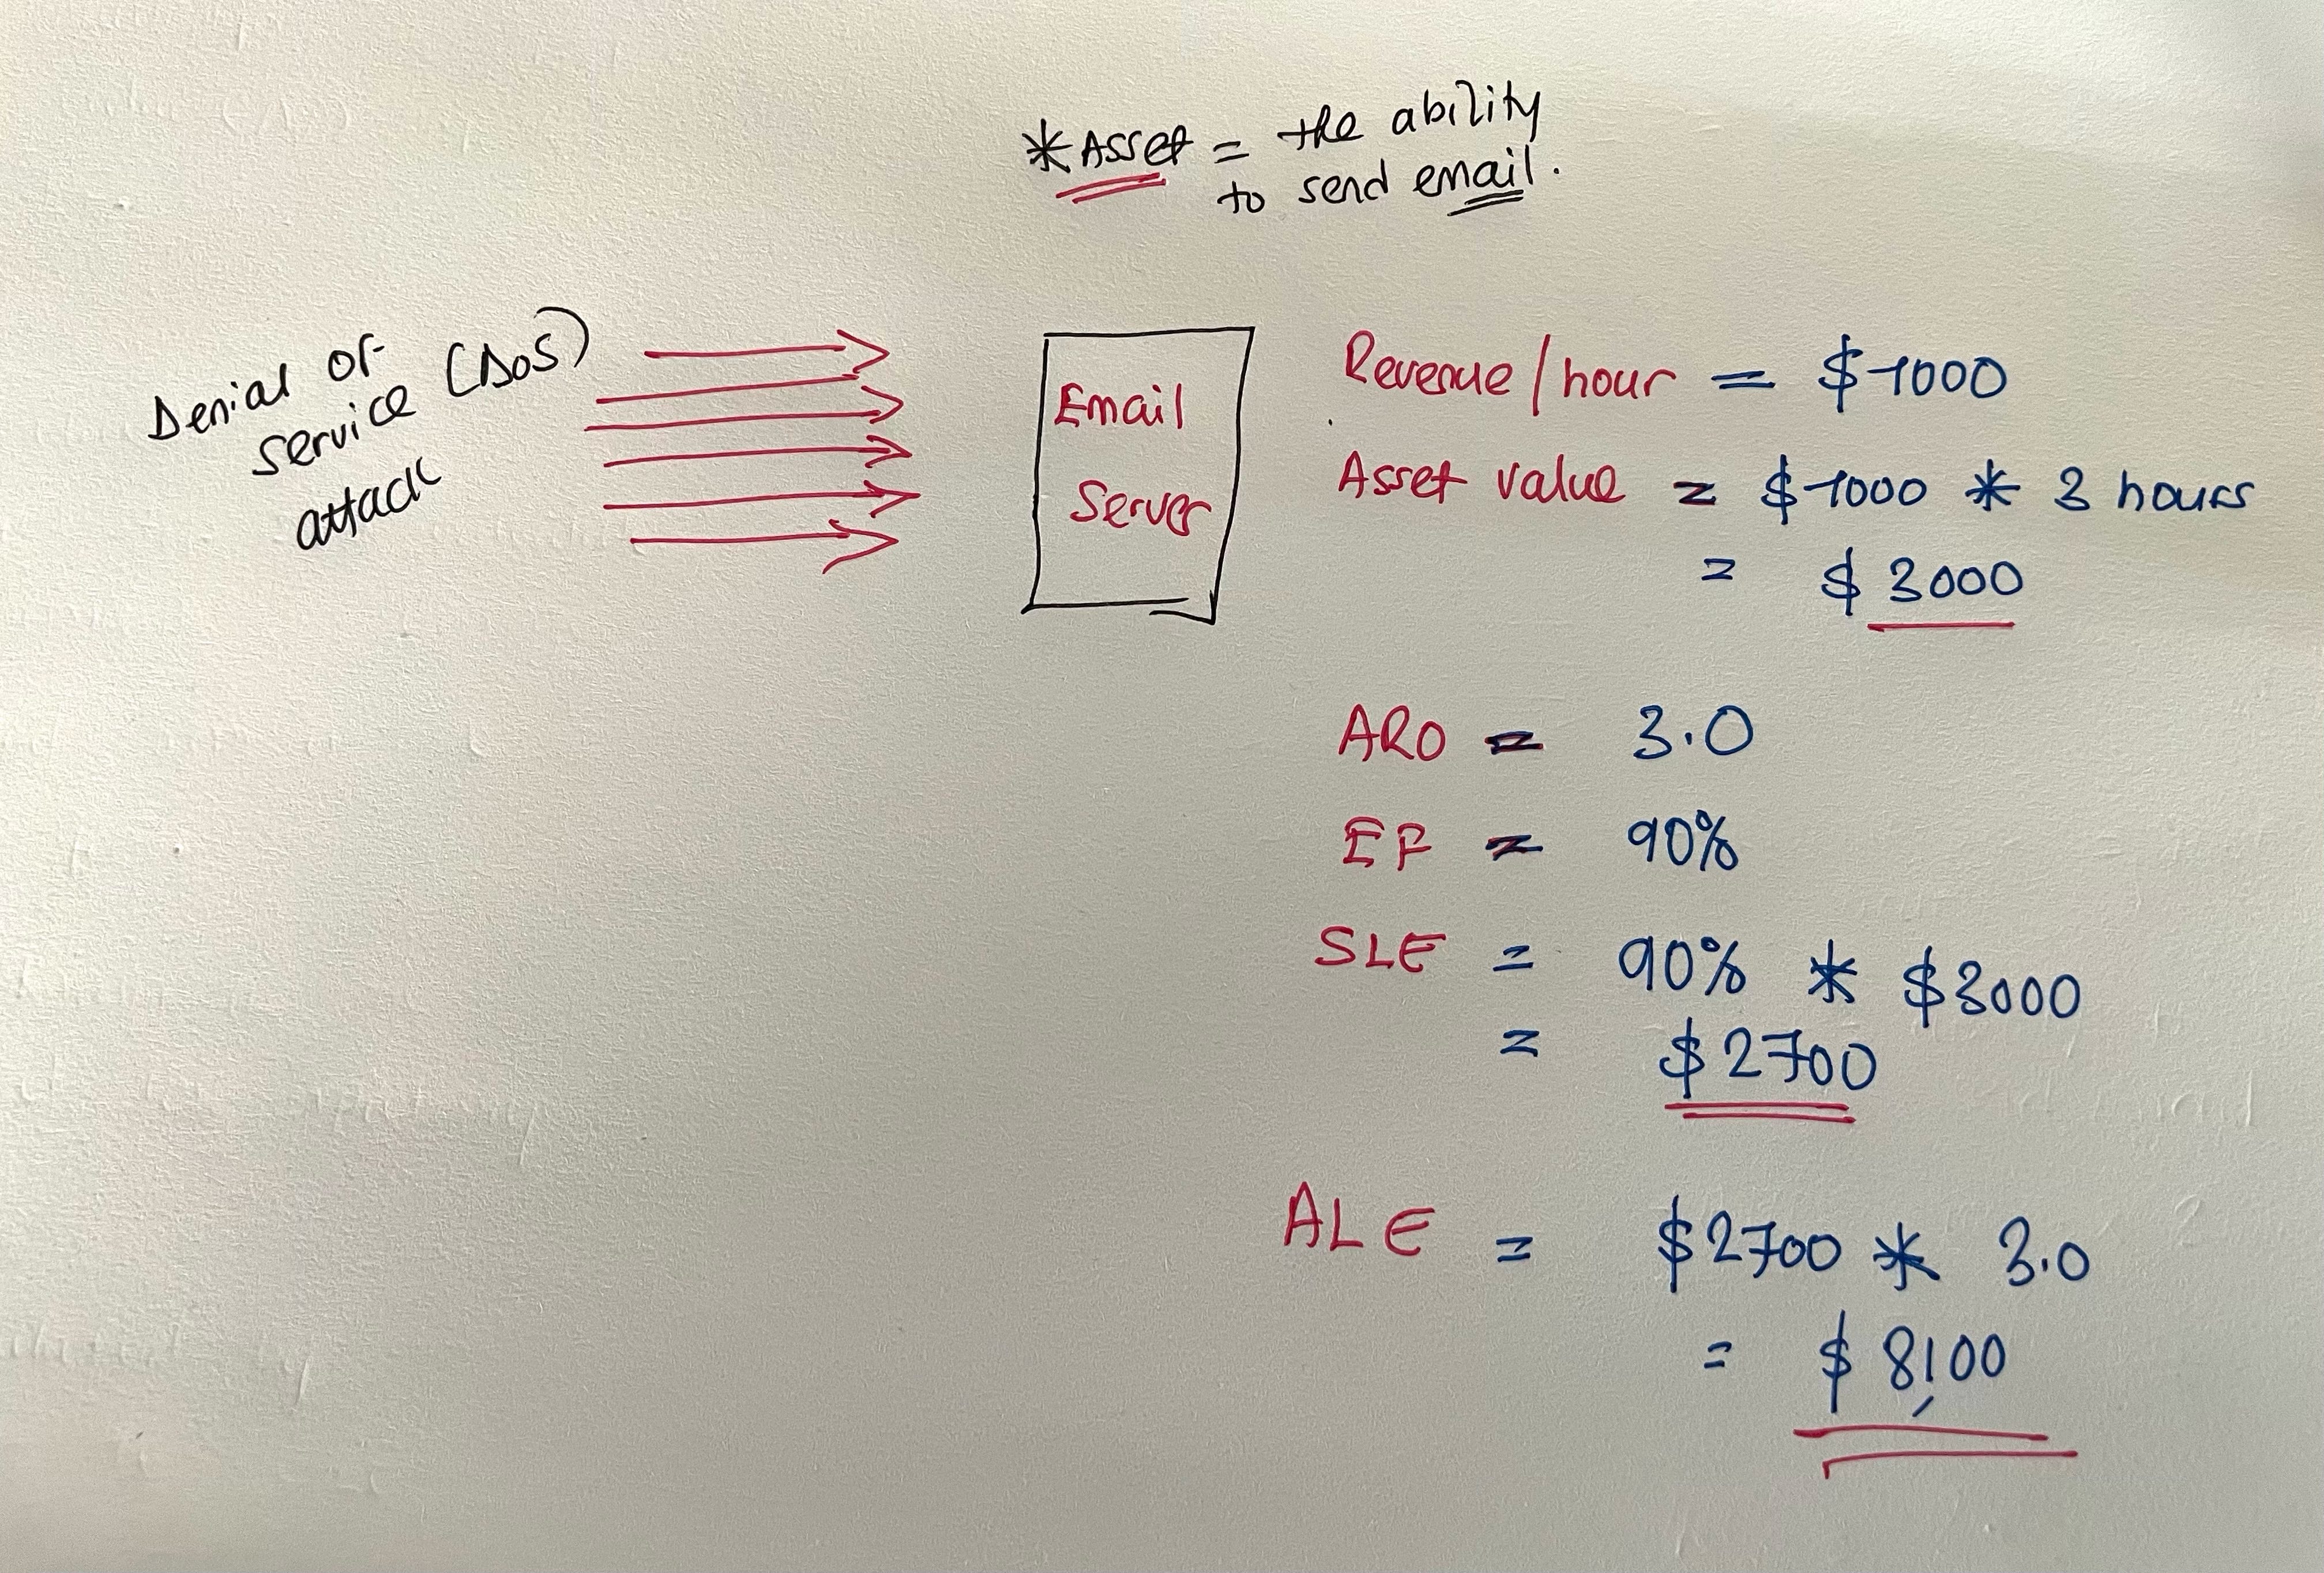 *Asset = the ability
to send email.
Denial of
service (DoS)
attack
Email
Server
Revenue/hour = $1000
Asset value = $1000 * 3 hours
= $3000
ARO = 3.0
EF = 90%
SLE = 90% * $3000
= $2700
ALE = $2700 * 3.0
= $8,100